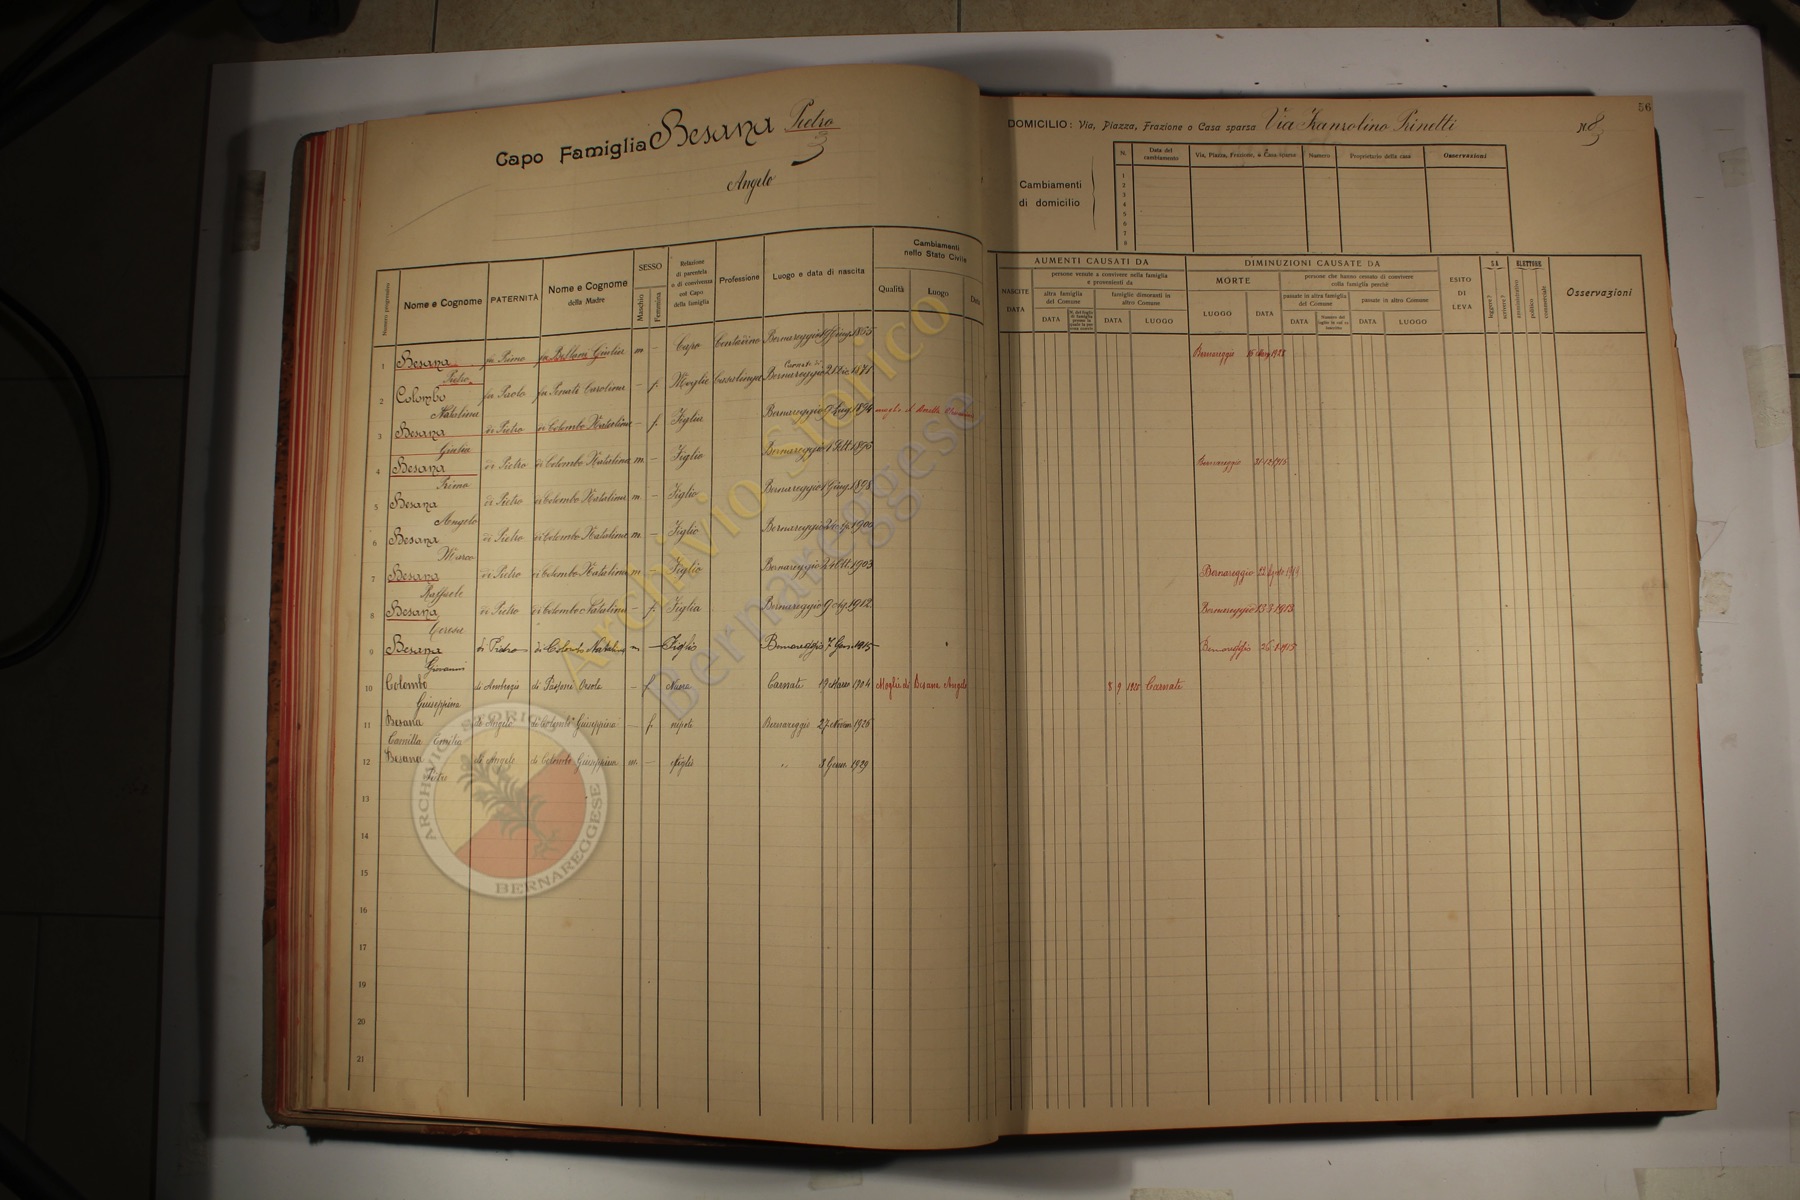 56
Capo Famiglia Besana Pietro
3
Angelo
DOMICILIO: Via, Piazza, Frazione o Casa sparsa Via Ranzolino Prinetti N. 3
Cambiamenti di domicilio
N. Data del cambiamento Via, Piazza, Frazione, o Casa sparse Numero Proprietario della casa Osservazioni
1
2
3
4
5
6
7
8
Numero progressivo Nome e Cognome PATERNITÀ Nome e Cognome della Madre SESSO Maschio Femmina Relazione di parentela o di convivenza col Capo della famiglia Professione Luogo e data di nascita Cambiamenti nello Stato Civile Qualità Luogo Data
NASCITE DATA AUMENTI CAUSATI DA persone venute a convivere nella famiglia e provenienti da altra famiglia del Comune DATA famiglie dimoranti in altro Comune DATA LUOGO
DIMINUZIONI CAUSATE DA MORTE LUOGO DATA persone che hanno cessato di convivere colla famiglia perchè passate in altra famiglia del Comune DATA passate in altro Comune DATA LUOGO
ESITO DI LEVA SA leggere? scrivere? ELETTORE amministrativo politico commerciale Osservazioni
1 Besana Pietro fu Primo fu Giulia m — Capo Contadino Bernareggio Giug. 1865 Bernareggio 1928
2 Colombo Natalina fu Paolo fu Penati Carolina — f. Moglie Casalinga Bernareggio 21 Dic. 1871
3 Besana Giulia di Pietro di Colombo Natalina — f. Figlia Bernareggio 9 1894
4 Besana Primo di Pietro di Colombo Natalina m. — Figlio Bernareggio 1 Sett. 1895 Bernareggio 31-12-1915
5 Besana Angelo di Pietro di Colombo Natalina m — Figlio Bernareggio 1 Giug. 1898
6 Besana Marco di Pietro di Colombo Natalina m. — Figlio Bernareggio 1900
7 Besana Raffaele di Pietro di Colombo Natalina m — Figlio Bernareggio 24 Ott. 1903 Bernareggio
8 Besana Teresa di Pietro di Colombo Natalina — f. Figlia Bernareggio 9 1912 Bernareggio 13-3-1913
9 Besana Giovanni di Pietro di Colombo Natalina m — Figlio Bernareggio 7 Gen. 1915 Bernareggio 26-1-1915
10 Colombo Giuseppina di Ambrogio di Passoni Orsola — f. Nuora Carnate 19 Marzo 1904 Moglie di Besana Angelo 8 9 Carnate
11 Besana Camilla Emilia di Angelo di Colombo Giuseppina — f. nipote Bernareggio 27 Novem. 1926
12 Besana Pietro di Angelo di Colombo Giuseppina m. — figlio " 3 Genn. 1929
13
14
15
16
17
18
19
20
21
Archivio Storico
Bernareggese
ARCHIVIO STORICO
BERNAREGGESE